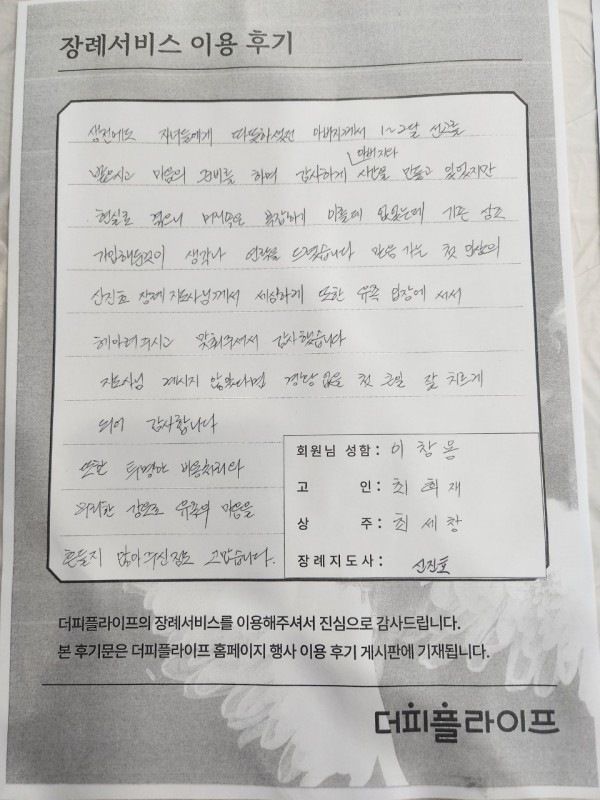 장례서비스 이용 후기
생전에도 자녀들에게 따뜻하셨던 아버지께서 1~2달 선고를
받으시고 마음의 준비를 하며 감사하게 아버지와 시간을 만들고 있었지만
현실로 겪으니 머릿속은 복잡하게 이를데 없었는데 기존 상조
가입해둔것이 생각나 연락을 드렸습니다 믿음 가는 첫 인상의
신진호 장례지도사님께서 세심하게 또한 유족 입장에 서서
헤아려주시고 맞춰주셔서 감사했습니다
지도사님 계시지 않았다면 경황 없을 첫 큰일 잘 치르게
되어 감사합니다
또한 투명한 비용처리와
무리한 강요로 유족의 마음을
흔들지 않아주신점도 고맙습니다.
회원님 성함: 이창몽
고 인: 최화재
상 주: 최세창
장례지도사: 신진호
더피플라이프의 장례서비스를 이용해주셔서 진심으로 감사드립니다.
본 후기문은 더피플라이프 홈페이지 행사 이용 후기 게시판에 기재됩니다.
더피플라이프